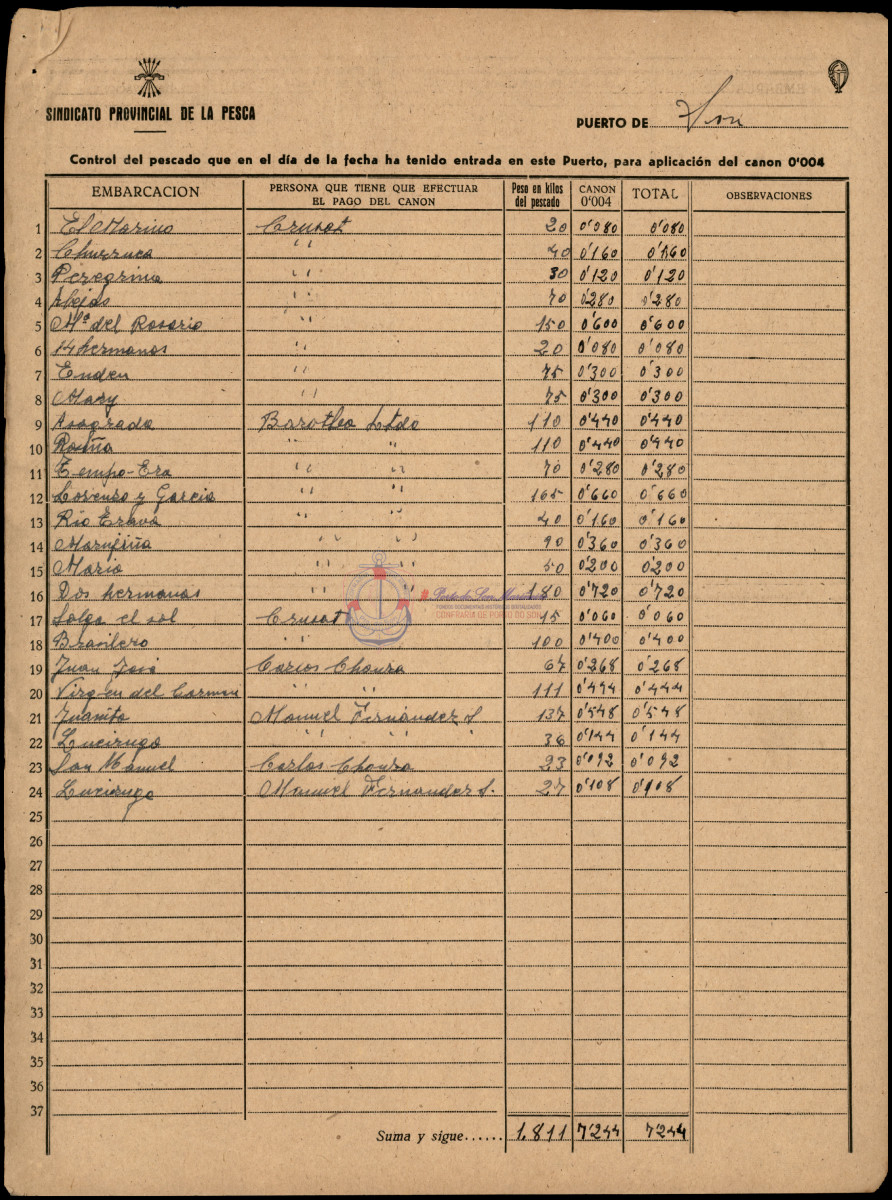 SINDICATO PROVINCIAL DE LA PESCA
PUERTO DE Son
Control del pescado que en el día de la fecha ha tenido entrada en este Puerto, para aplicación del canon 0'004
EMBARCACION PERSONA QUE TIENE QUE EFECTUAR EL PAGO DEL CANON Peso en kilos del pescado CANON 0'004 TOTAL OBSERVACIONES
1 El Marino Crusat 20 0'080 0'080
2 Churruca " 40 0'160 0'160
3 Peregrina " 30 0'120 0'120
4 " 70 0'280 0'280
5 Mª del Rosario " 150 0'600 0'600
6 14 hermanos " 20 0'080 0'080
7 " 75 0'300 0'300
8 Mary " 75 0'300 0'300
9 Ltdo 110 0'440 0'440
10 " " 110 0'440 0'440
11 Tempo-Era " " 70 0'280 0'280
12 Lorenzo y Garcia " " 165 0'660 0'660
13 Rio " " 40 0'160 0'160
14 Marujiña " " 90 0'360 0'360
15 Maria " " 50 0'200 0'200
16 Dos hermanas " " 180 0'720 0'720
17 Salga el sol Crusat 15 0'060 0'060
18 Brasilero 100 0'400 0'400
19 Juan José Carlos Chouza 67 0'268 0'268
20 Virgen del Carmen " " 111 0'444 0'444
21 Juanito Manuel Fernández S. 137 0'548 0'548
22 " " " 36 0'144 0'144
23 San Manuel Carlos Chouza 23 0'092 0'092
24 Manuel Fernandez S. 27 0'108 0'108
25
26
27
28
29
30
31
32
33
34
35
36
37
Suma y sigue...... 1.811 7'244 7'244
FONDOS DOCUMENTAIS HISTÓRICOS DIGITALIZADOS
CONFRARÍA DE PORTO DO SON